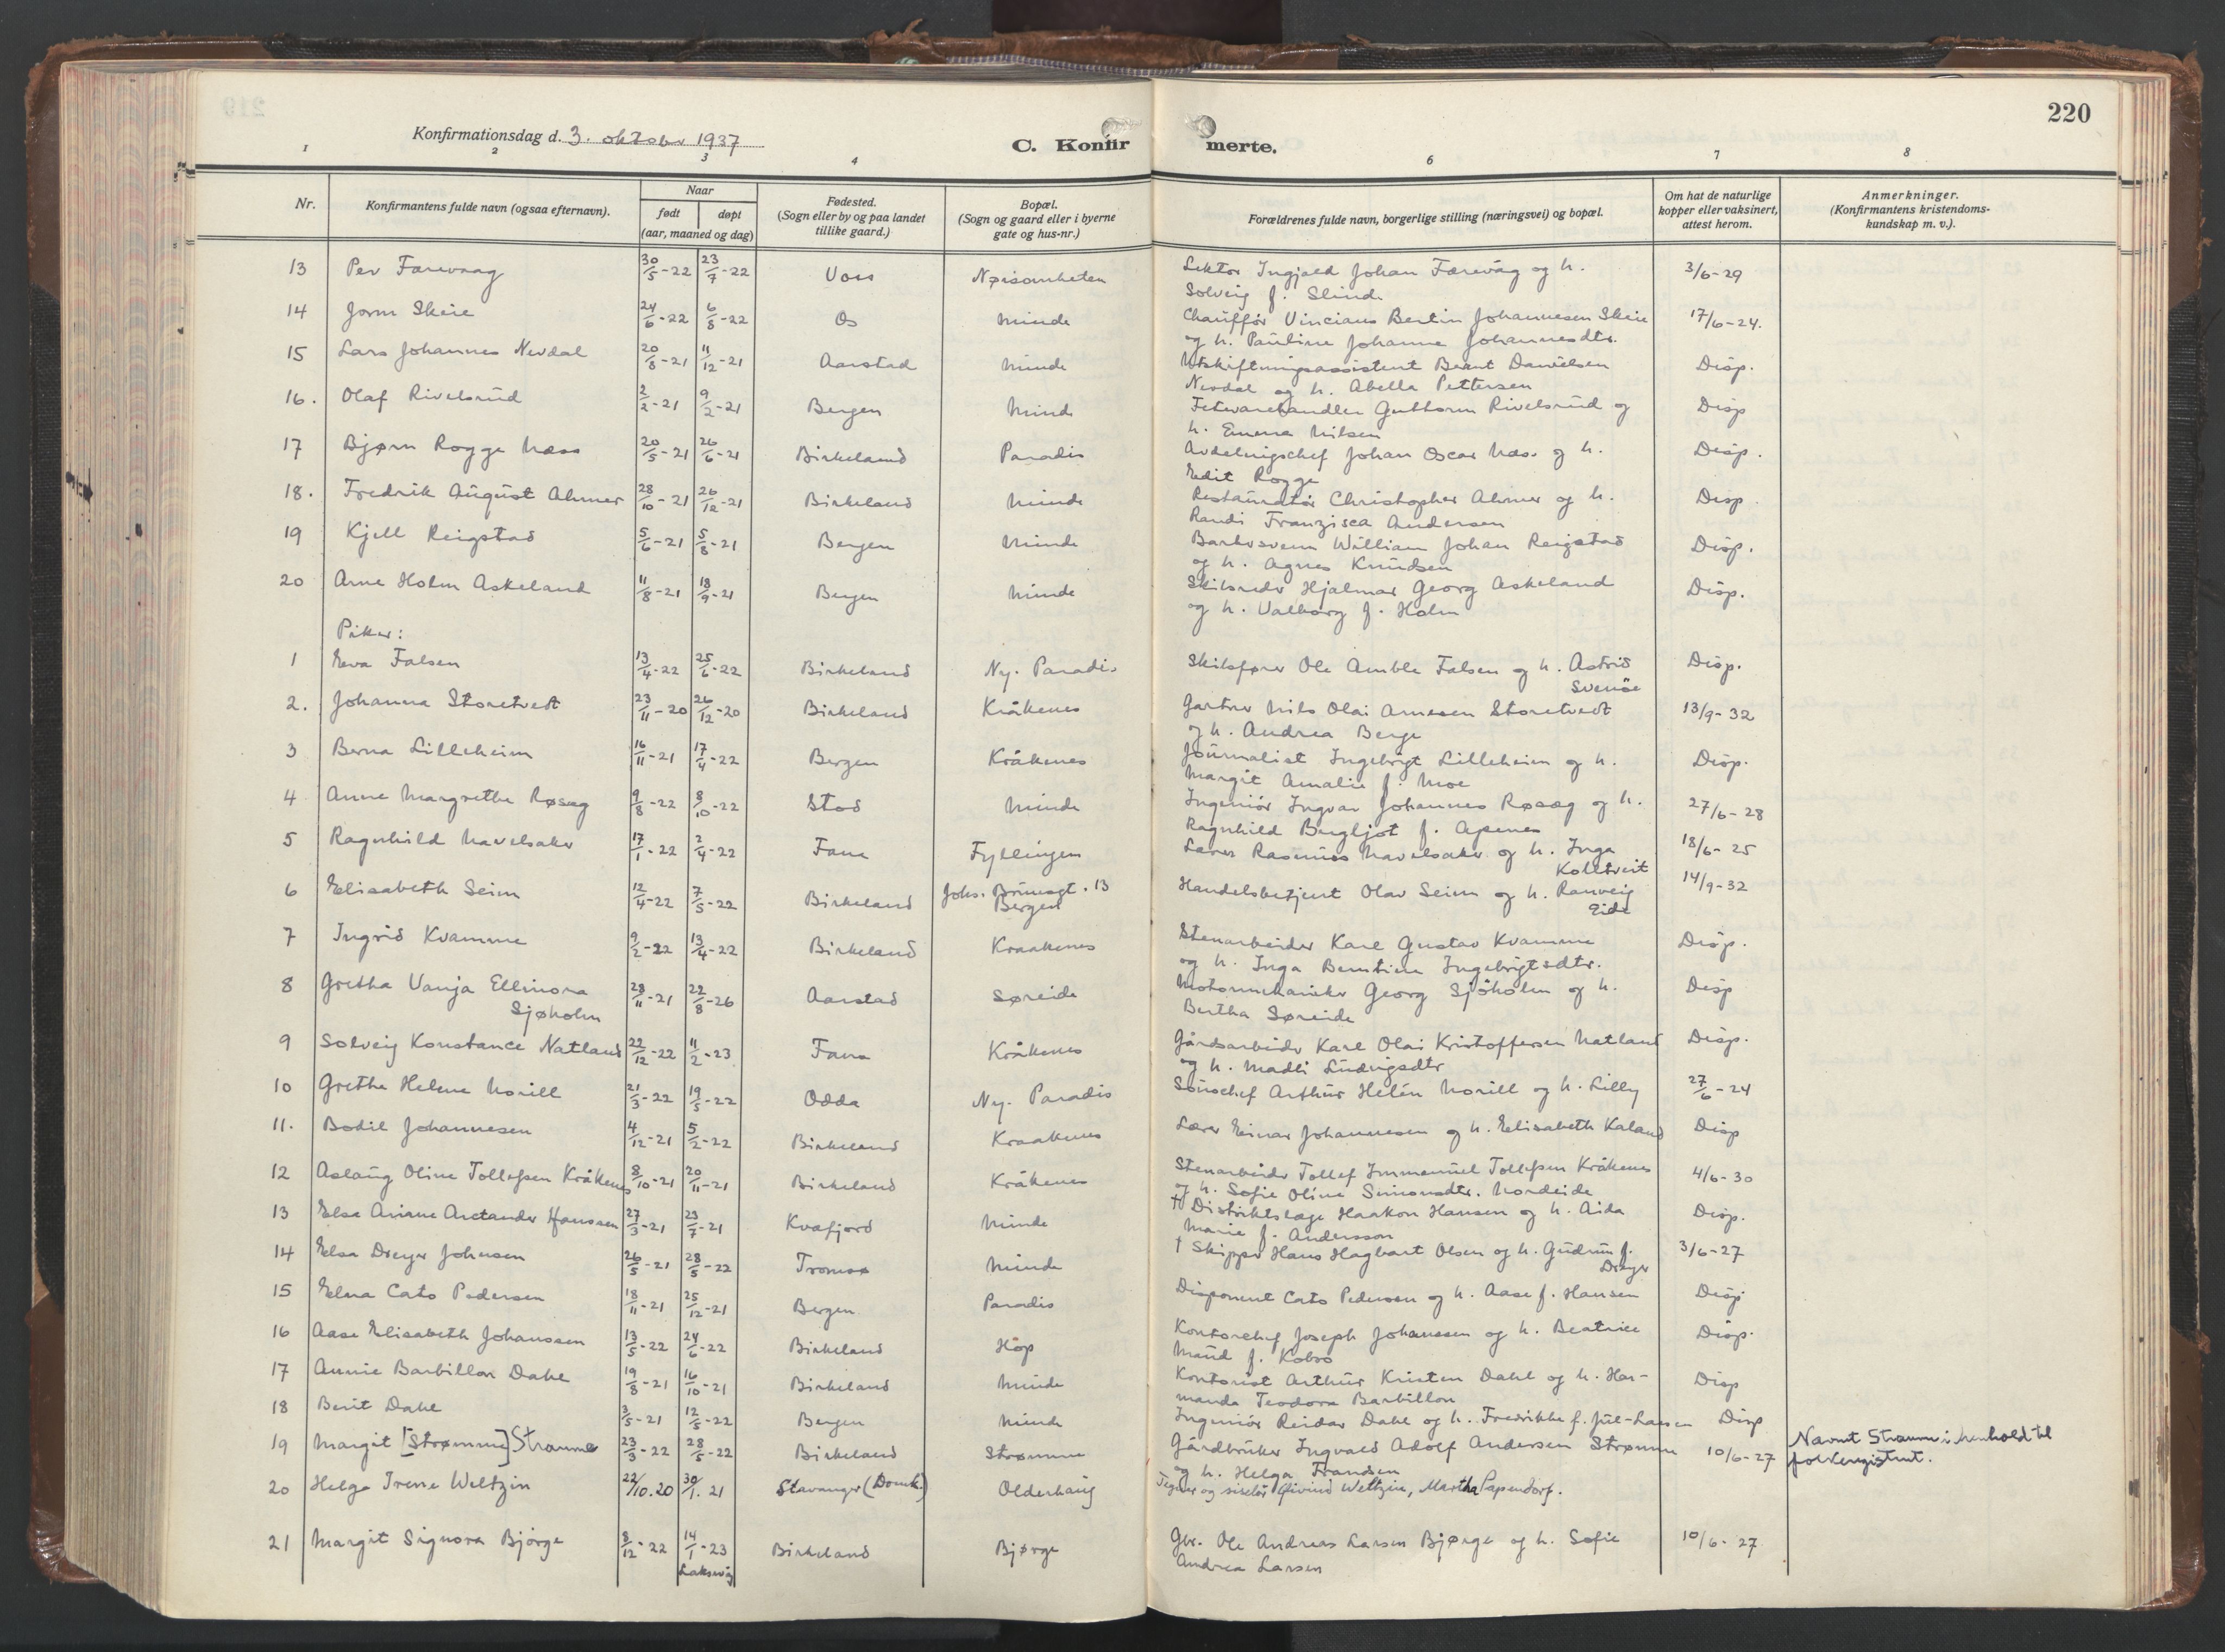 220
Konfirmationsdag d. 3. oktober 1937
C. Konfirmerte.
1 2 3 4 6 7 8
Nr. Konfirmantens fulde navn (ogsaa efternavn). Naar født døpt (aar, maaned og dag) Fødested. (Sogn eller by og paa landet tillike gaard.) Bopæl. (Sogn og gaard eller i byerne gate og hus-nr.) Forældrenes fulde navn, borgerlige stilling (næringsvei) og bopæl. Om hat de naturlige kopper eller vaksinert, attest herom. Anmerkninger. (Konfirmantens kristendoms-kundskap m. v.).
13 Per Farevaag 30/5-22 23/7-22 Voss Nøisomheten Lektor Ingjald Johan Farevåg og h. 3/6-29
Solveig f. Slinde
14 Jorm Skeie 24/6-22 6/8-22 Os Minde Chauffør Vincians Bertin Johannesen Skeie 17/6-24.
og h. Pauline Johanne Johannesdtr.
15 Lars Johannes Nevdal 20/8-21 11/12-21 Aarstad Minde Utskiftningsassistent Berant Danielsen Disp.
Nevdal og h. Abella Pettersen
16. Olaf Rivelsrud 2/2-21 9/2-21 Bergen Minde Fetevarehandler Guttorm Rivelsrud og Disp
h. Emma Nilsen
17 Bjørn Rogge Næss 20/5-21 26/6-21 Birkeland Paradis Avdelingschef Johan Oscar Næss og h. Disp.
Edit Rogge
18. Fredrik August Ahmer 28/10-21 26/12-21 Birkeland Minde Restauratør Christopher Ahmer og h. Disp.
Randi Franzisca Andersen
19 Kjell Reigstad 5/6-21 5/8-21 Bergen Minde Barkvsvenn William Johan Reigstad Disp.
og h. Agnes Knudsen
20 Arne Holm Askeland 11/8-21 18/9-21 Bergen Minde Skibsreder Hjalmar Georg Askeland Disp.
og h. Valborg f. Holm
Piker:
1 Eva Falsen 13/4-22 25/6-22 Birkeland Ny-Paradis Skibsfører Ole Amble Falsen og h. Astrid Disp.
Svenöe
2. Johanna Storetvedt 23/11-20 26/12-20 Birkeland Kråkenes Gartner Nils Olai Arnesen Storetvedt 13/9-32
og h. Andrea Berge
3 Berna Lilleheim 16/11-21 17/4-22 Bergen Kråkenes Journalist Ingebrigt Lilleheim og h. Disp.
Margit Amalie f. Moe
4 Anne Margrethe Røsæg 9/8-22 8/10-22 Stod Minde Ingeniör Ingvar Johannes Røsæg og h. 27/6-28
Ragnhild Bergljot f. Apenes
5 Ragnhild Navelsaker 17/1-22 2/4-22 Fana Fyllingen Lærer Rasmus Navelsaker og h. Inga 18/6-25
Koltveit
6 Elisabeth Seim 12/4-22 7/5-22 Birkeland Johs. Brunsgt. 13 Handelsbetjent Olav Seim og h. Ranveig 14/9-32
Bergen Eide
7 Ingrid Kvamme 9/2-22 13/4-22 Birkeland Kraakenes Stenarbeider Karl Gustav Kvamme Disp.
og h. Inga Berntine Ingebrigtsdtr.
8 Gretha Vanja Ellinora 23/11-21 22/8-26 Aarstad Søreide Motormekaniker Georg Sjöholm og h. Disp
Sjøholm Bertha Søreide
9 Solveig Konstance Natland 22/12-22 11/2-23 Fana Kråkenes Gårdsarbeider Karl Olai Kristoffersen Natland Disp.
og h. Madli Ludvigsdtr
10 Grethe Helene Norill 21/3-22 19/5-22 Odda Ny-Paradis Souschef Arthur Helén Norill og h. Lilly 27/6-24
11. Bodil Johannesen 4/12-21 5/2-22 Birkeland Kraakenes Lærer Einar Johannesen og h. Elisabeth Kaland Disp
12 Aslaug Oline Tollefsen Kråkenes 8/10-21 20/11-21 Birkeland Kråkenes Stenarbeider Tollef Immanuel Tollefsen Kråkenes 4/6-30
og h. Sofie Oline Simonsdtr. Nordeide
13 Else Ariane Arctander Hanssen 27/3-21 23/7-21 Kvæfjord Minde † Distriktslæge Haakon Hansen og h. Aida Disp.
Marie f. Andersson
14 Elsa Dreyer Johnsen 26/5-21 28/5-22 Tromsø Minde † Skipper Hans Hagbart Olsen og h. Gudrun f. 3/6-27
Dreyer
15 Elna Cato Pedersen 18/11-21 25/12-21 Bergen Paradis Disponent Cato Pedersen og h. Aase f. Hansen Disp
16 Aase Elisabeth Johanssen 13/5-22 24/6-22 Birkeland Hop Kontorchef Joseph Johanssen og h. Beatrice Disp.
Maud f. Kobro
17 Annie Barbillon Dahl 19/8-21 16/10-21 Birkeland Minde Kontorist Arthur Kristen Dahl og h. Har- Disp
manda Teodora Barbillon
18 Berit Dahl 3/5-21 12/5-22 Bergen Minde Ingeniör Reidar Dahl og h. Fredrikke f. Jul-Larsen Disp
19 Margit [Strømme] Straume 23/3-22 28/5-22 Birkeland Strømme Gårdbruker Ingvald Adolf Andersen Strømme 10/6-27 Navnet Straume i henhold til
og h. Helga Frandsen folkeregistret.
20 Helga Irene Weltzin 22/10.20 30/1.21 Stavanger (Domk.) Olderhaug Tegner og siselør Eivind Weltzin, Martha Papendorf.
21 Margit Signora Bjørge 8/12-22 14/1-23 Birkeland Bjørge Gbr. Ole Andreas Larsen Bjørge og h. Sofie 10/6-27
Laksevig Andrea Larsen